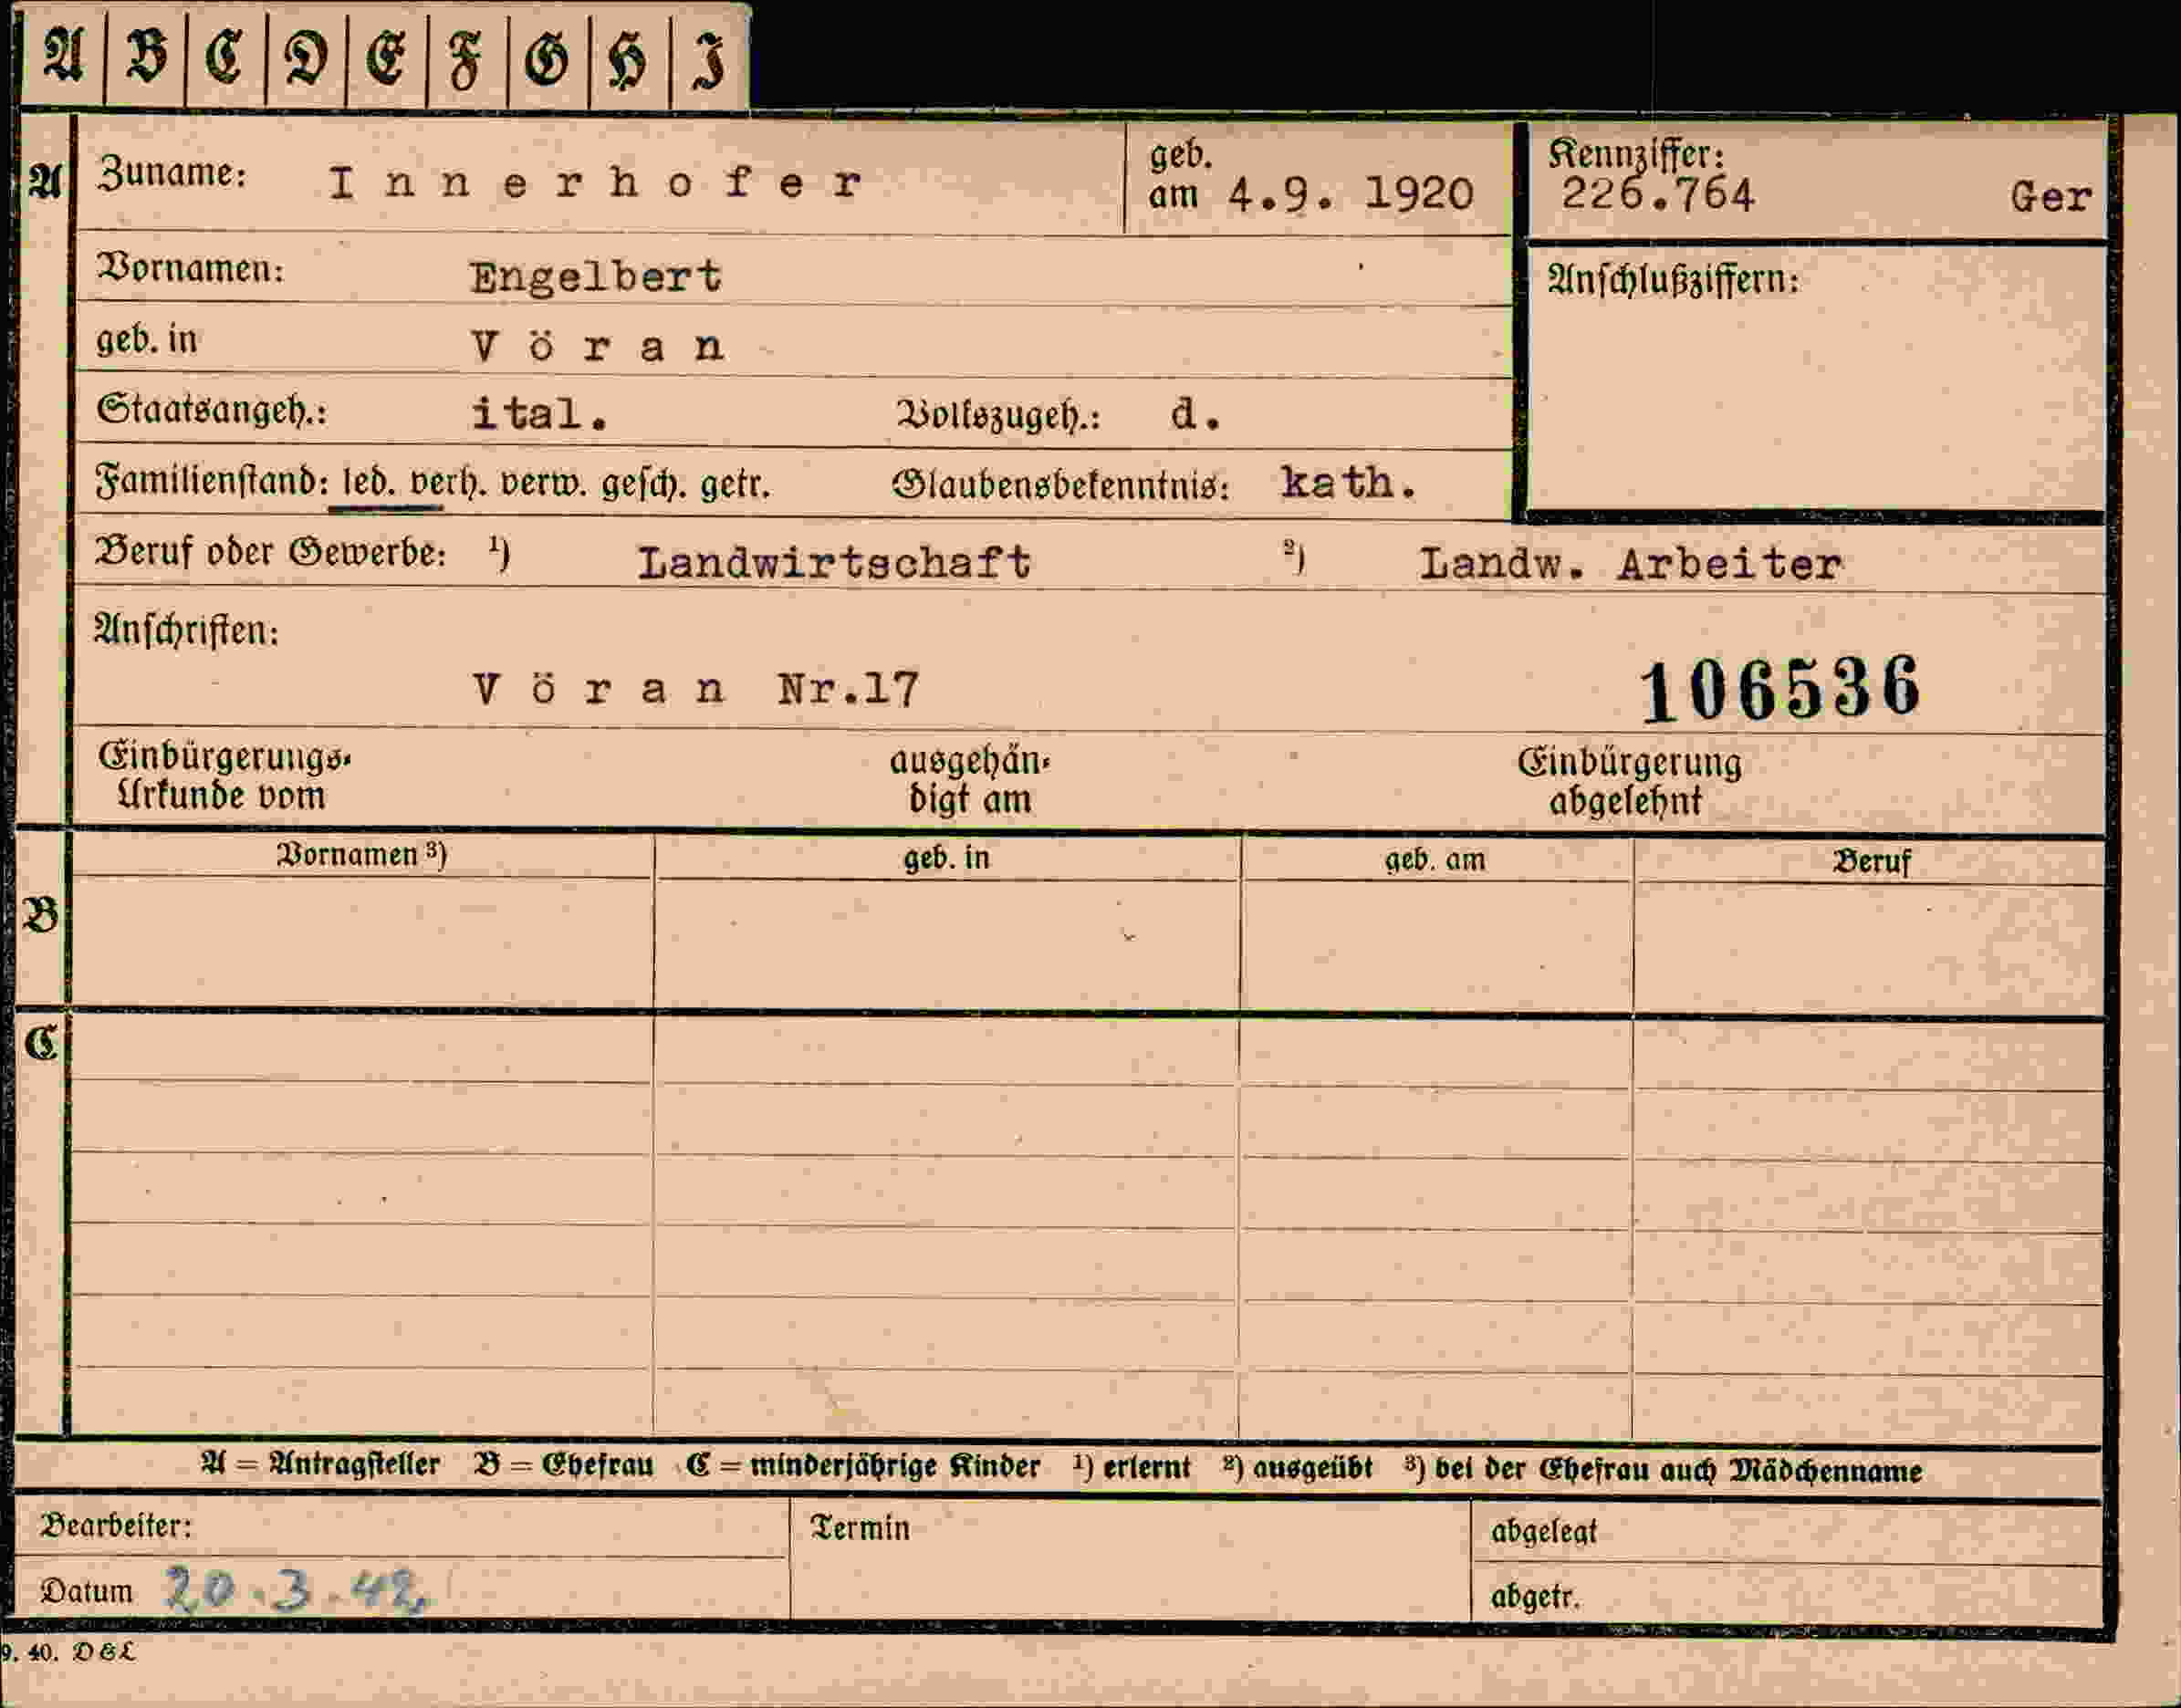 A B C D E F G H I
A Zuname: Innerhofer geb. am 4.9. 1920 Kennziffer: 226.764 Ger
Vornamen: Engelbert Anschlußziffern:
geb. in Vöran
Staatsangeh.: ital. Volkszugeh.: d.
Familienstand: led. verh. verw. gesch. getr. Glaubensbekenntnis: kath.
Beruf oder Gewerbe: 1) Landwirtschaft 2) Landw. Arbeiter
Anschriften:
Vöran Nr.17 106536
Einbürgerungs- ausgehän- Einbürgerung
Urkunde vom digt am abgelehnt
Vornamen 3) geb. in geb. am Beruf
B
C
A = Antragsteller B = Ehefrau C = minderjährige Kinder 1) erlernt 2) ausgeübt 3) bei der Ehefrau auch Mädchenname
Bearbeiter: Termin abgelegt
Datum 20.3.42. abgetr.
9. 40. D&L